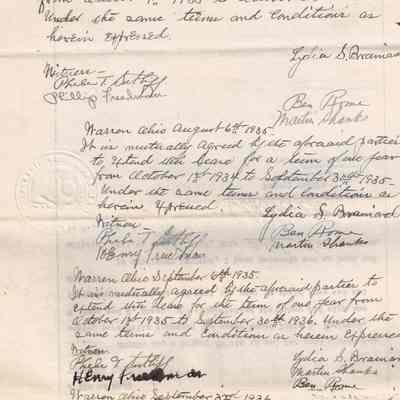 Under the same terms and conditions as
herein expressed.
Lydia S. Brainard
Witness -
Phebe T. Sutliff
Phillip
Ben Rome
Martin Shanks
Warren Ohio August 6th 1935.
It is mutually agreed by the aforesaid parties
to extend this lease for a term of one year
from October 1st 1934 to September 30th 1935-
Under the same terms and conditions as
herein expressed.
Lydia S. Brainard
Witness
Phebe T. Sutliff
Henry Freedman
Ben Rome
Martin Shanks
Warren Ohio September 6th 1935.
It is mutually agreed by the aforesaid parties to
extend this lease for the term of one year from
October 1st 1935 to September 30th 1936. Under the
same terms and conditions as herein expressed
Witness
Phebe T. Sutliff
Henry Freedman
Lydia S. Brainard
Martin Shanks
Ben Rome
Warren Ohio September 1936